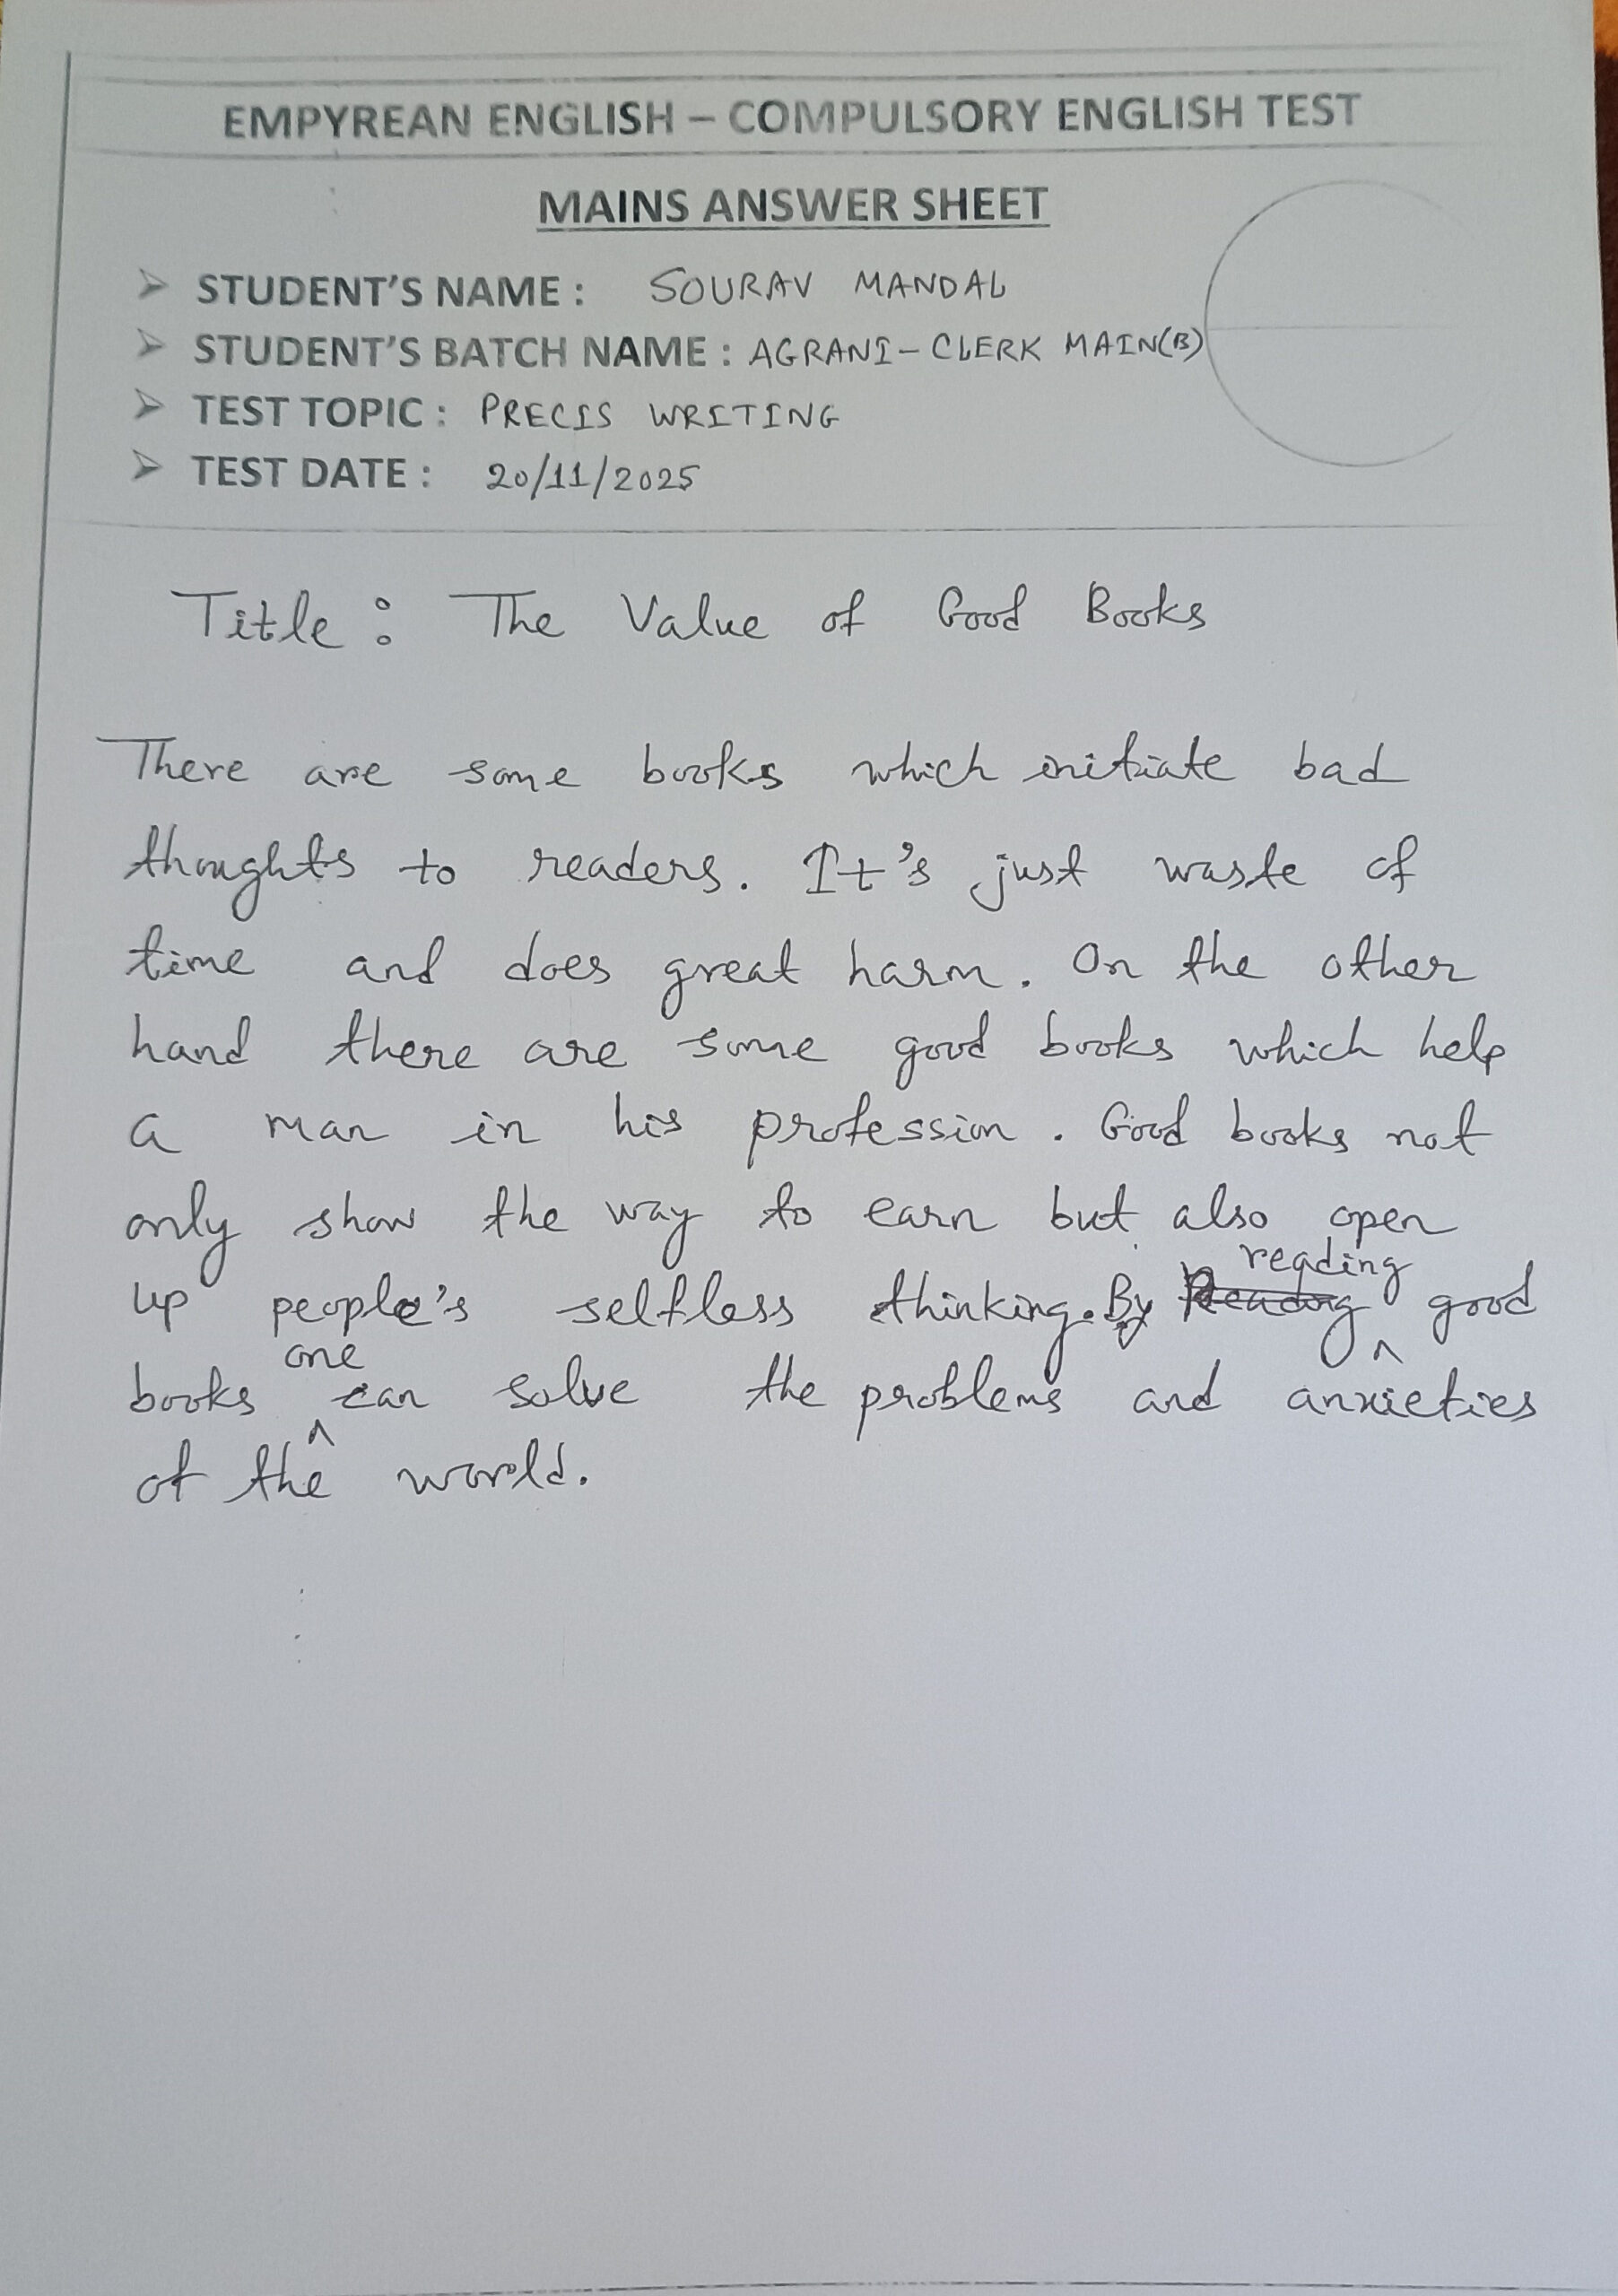 EMPYREAN ENGLISH – COMPULSORY ENGLISH TEST
MAINS ANSWER SHEET
➢ STUDENT'S NAME : SOURAV MANDAL
➢ STUDENT'S BATCH NAME : AGRANI-CLERK MAIN(B)
➢ TEST TOPIC : PRECIS WRITING
➢ TEST DATE : 20/11/2025
Title : The Value of Good Books
There are some books which initiate bad
thoughts to readers. It's just waste of
time and does great harm. On the other
hand there are some good books which help
a man in his profession. Good books not
only show the way to earn but also open
up people's selfless thinking. By reading good
books one can solve the problems and anxieties
of the world.